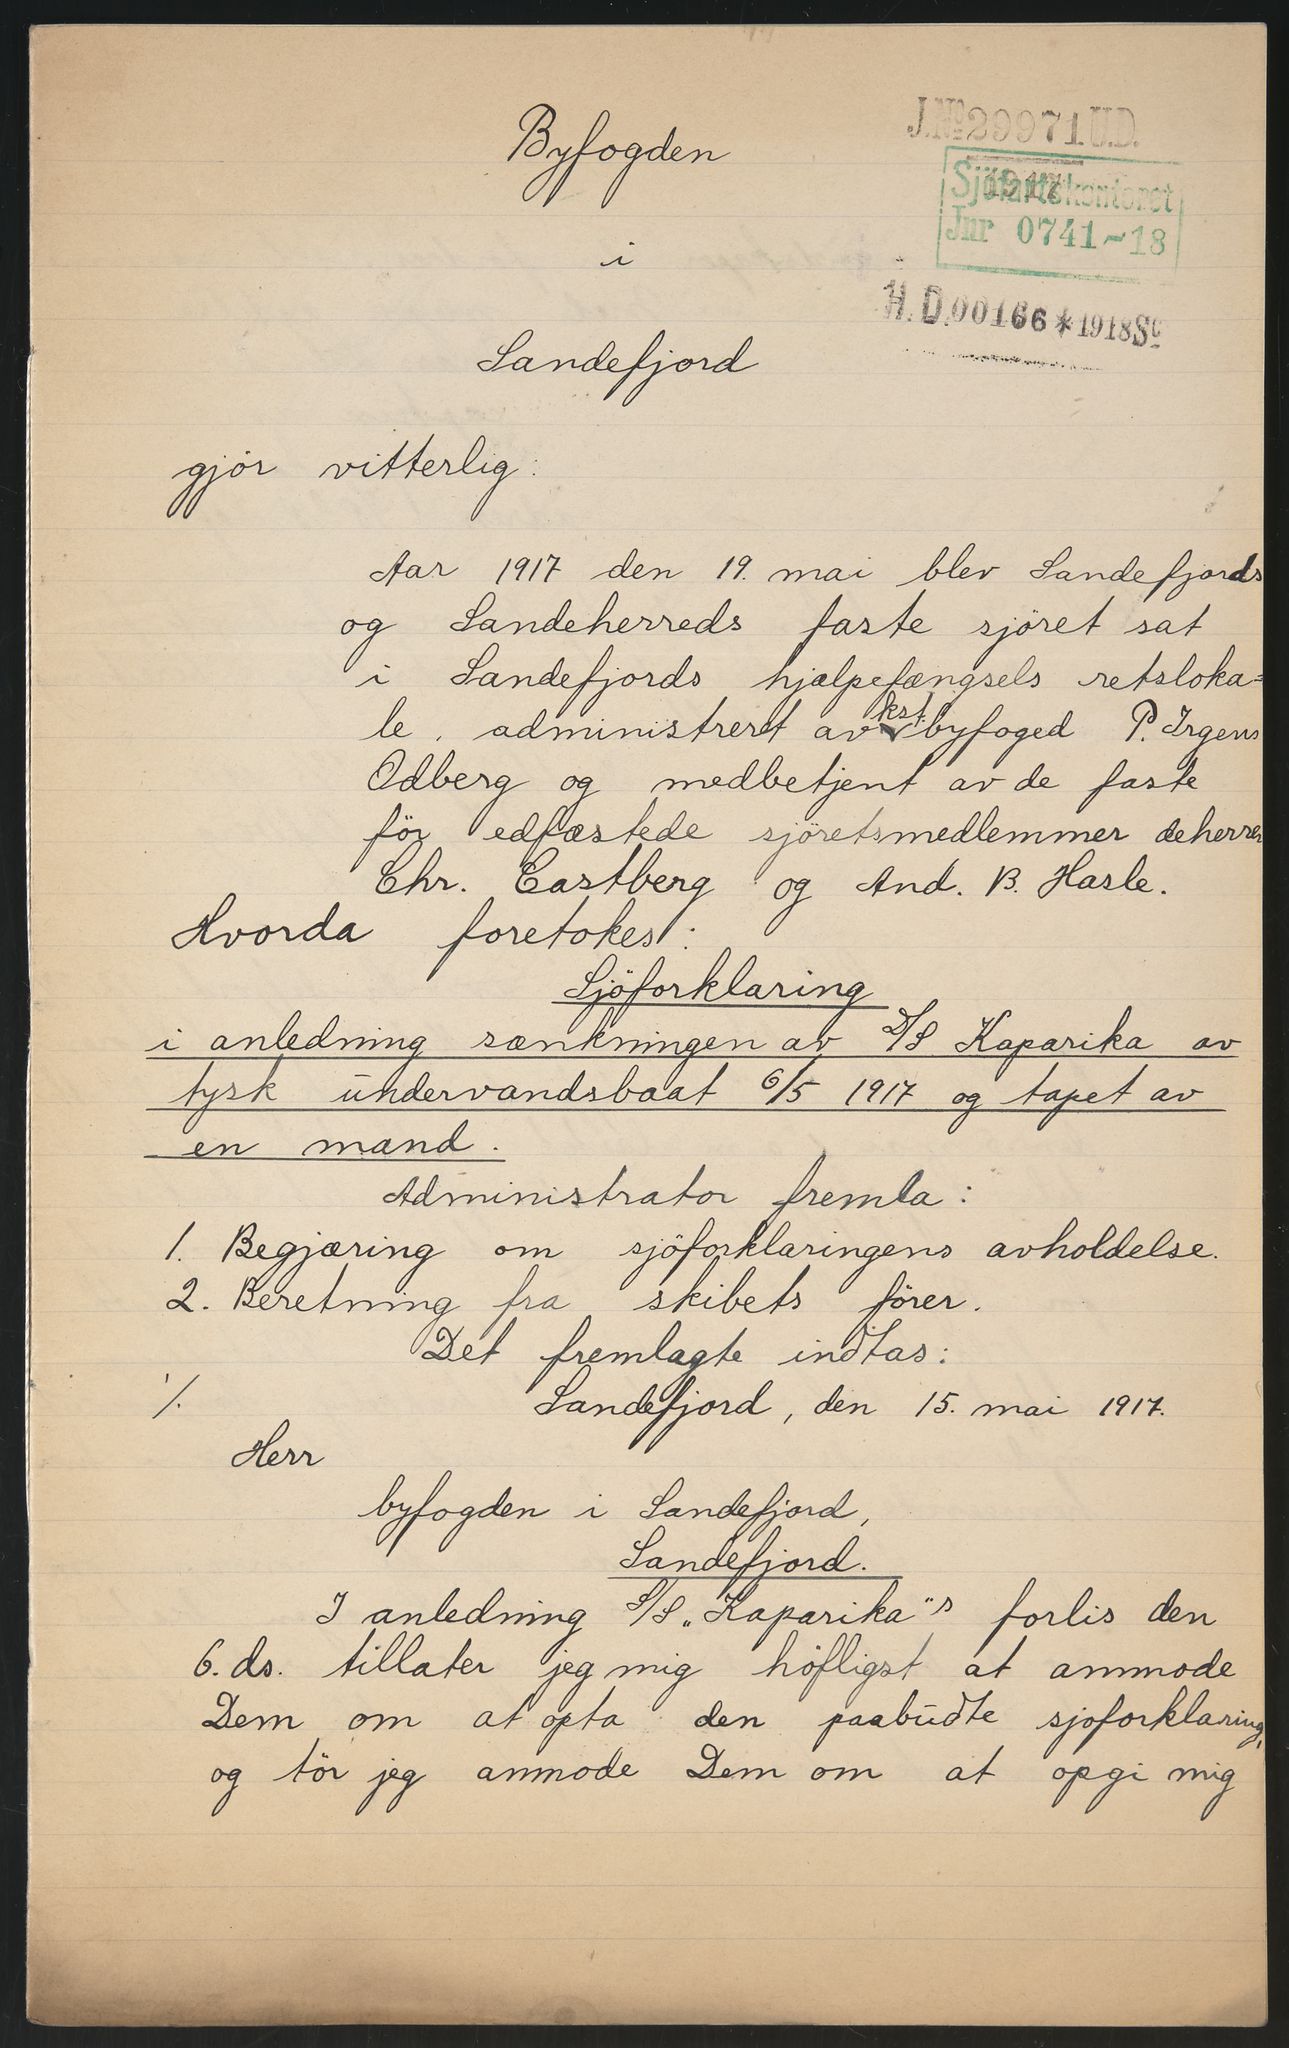 Byfogden
J.No 29971 U.D.
1917
Sjöfartskontoret
Jnr 0741-18
i
H.D.00166*1918Sc
Sandefjord
gjör vitterlig:
Aar 1917 den 19. mai blev Sandefjords
og Sandeherreds faste sjöret sat
i Sandefjords hjælpefængsels retsloka=
le, administrert av kst. byfoged P. Irgens
Odberg og medbetjent av de faste
för edfæstede sjöretsmedlemmer deherrer
Chr. Castberg og And. B. Hasle.
Hvorda foretokes:
Sjöforklaring
i anledning sænkningen av D/S Kaparika av
tysk undervandsbaat 6/5 1917 og tapet av
en mand.
Administrator fremla:
1. Begjæring om sjöforklaringens avholdelse.
2. Beretning fra skibets förer.
Det fremlagte indtas:
1/. Sandefjord, den 15. mai 1917.
Herr
byfogden i Sandefjord,
Sandefjord.
I anledning S/S „Kaparika"s forlis den
6. ds. tillater jeg mig höfligst at anmode
Dem om at opta den paabudte sjoforklaring,
og tör jeg anmode Dem om at opgi mig